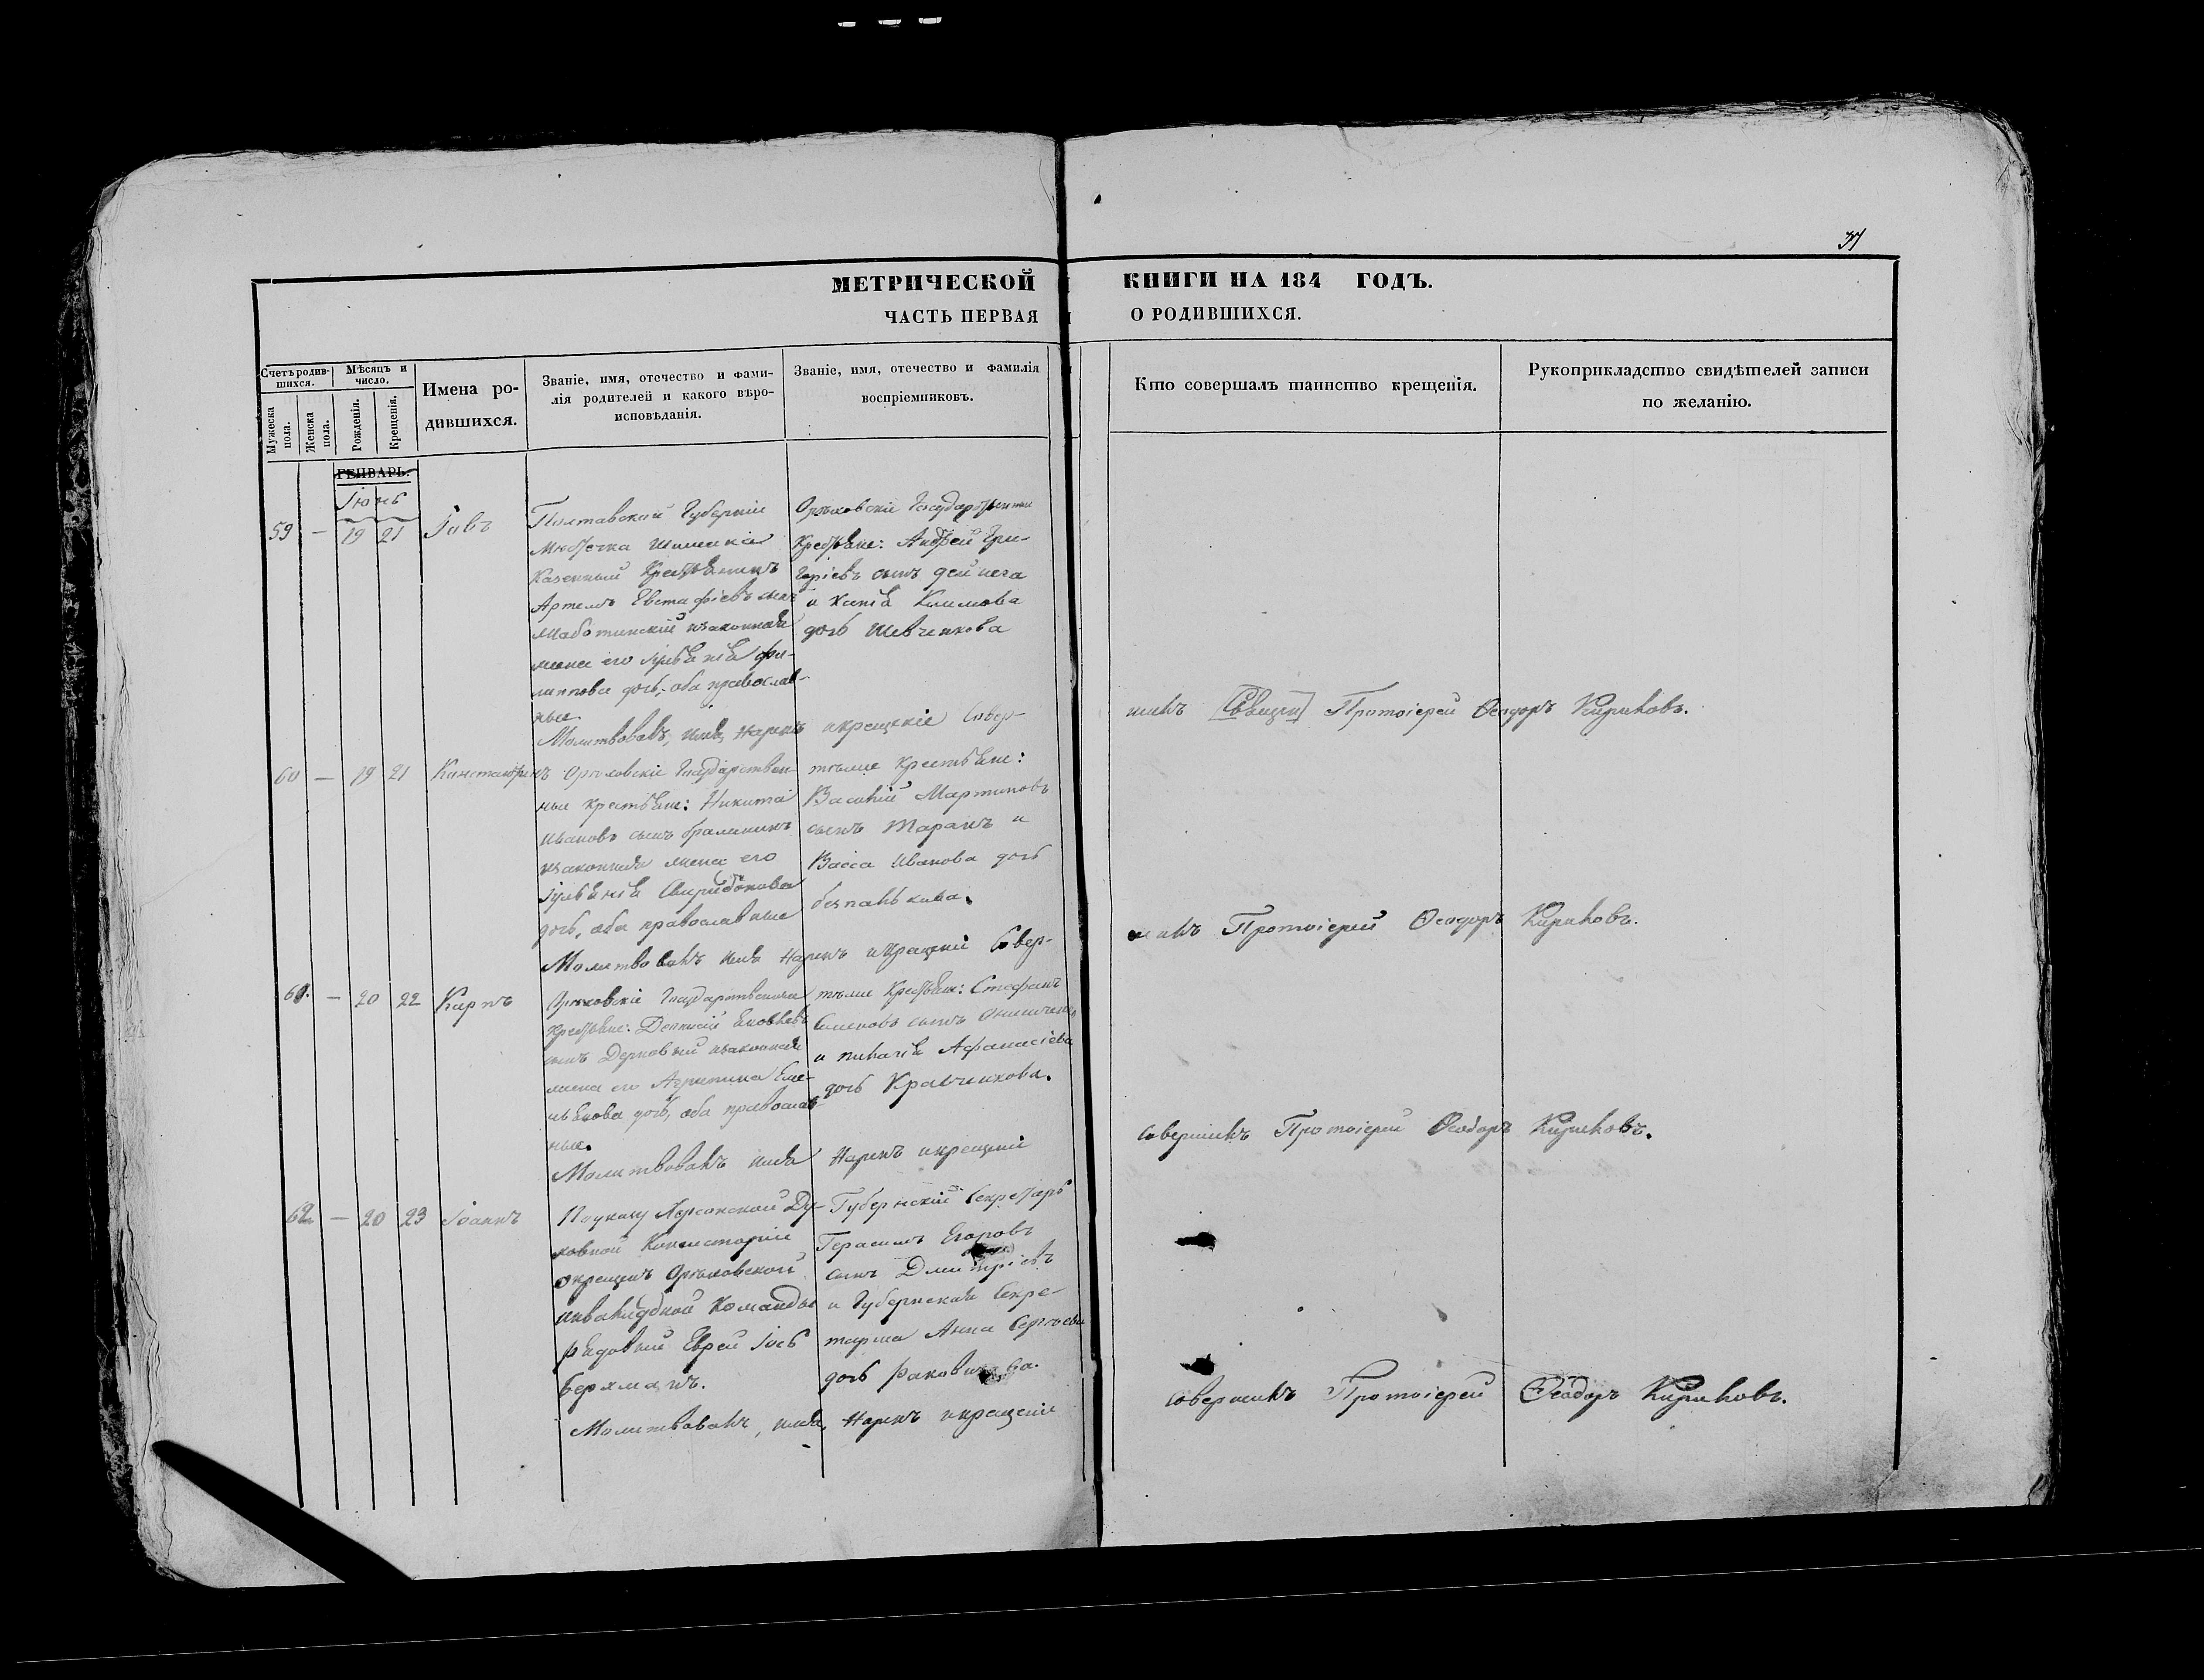 МЕТРИЧЕСКОЙ КНИГИ НА 184 ГОДЪ.
ЧАСТЬ ПЕРВАЯ О РОДИВШИХСЯ.
Счетъ родившихся.
Мужеска пола.
Женска пола.
Мѣсяцъ и число.
Рожденія.
Крещенія.
Имена родившихся.
Званіе, имя, отечество и фами-
лія родителей и какого вѣро-
исповѣданія.
Званіе, имя, отечество и фамилія
воспріемниковъ.
Кто совершалъ таинство крещенія.
Рукоприкладство свидѣтелей записи
по желанію.
ГЕНВАРЬ.
Іюнь
59 — 19 21 Іовъ
Полтавской Губерніи
Казенный Крестьянинъ
Артемъ Евстафіевъ сынъ
и законная
жена его Іульянія Фи-
липпова дочь, оба православ-
ные.
Орѣховскіе Государственные
Крестьяне: Андрей Гри-
горіевъ сынъ
и Ксенія Климова
дочь Шевченкова
Молитвовалъ, имя нарекъ и крещеніе совер-
шилъ Протоіерей Феодоръ Кириковъ.
60 — 19 21 Константинъ
Орѣховскіе Государствен-
ные крестьяне: Никита
Ивановъ сынъ
и законная жена его
Іульянія Свиридонова
дочь, оба православные
крестьяне:
Василій Мартиновъ
сынъ Таранъ и
Васса Иванова дочь
Молитвовалъ имя нарекъ и крещеніе совер-
шилъ Протоіерей Феодоръ Кириковъ.
61. — 20 22 Карпъ
Орѣховскіе Государственные
крестьяне: Яковлевъ
сынъ и законная
жена его Агрипина Еме-
льянова дочь, оба православ-
ные.
Крестьяне: Стефанъ
Семеновъ сынъ
и Пелагія Афанасіева
дочь Кравченкова.
Молитвовалъ имя нарекъ и крещеніе
совершилъ Протоіерей Феодоръ Кириковъ.
62 — 20 23 Іоаннъ
По указу Херсонской Ду-
ховной Консисторіи
окрещенъ Орѣховской
инвалидной Команды
рядовый Еврей Іось
Берхманъ.
Губернскій Секретарь
Герасимъ Егоровъ
сынъ Дмитріевъ
и Губернская Секре-
тарша Анна Сергѣева
дочь
Молитвовалъ, имя нарекъ и крещеніе
совершилъ Протоіерей Феодоръ Кириковъ.